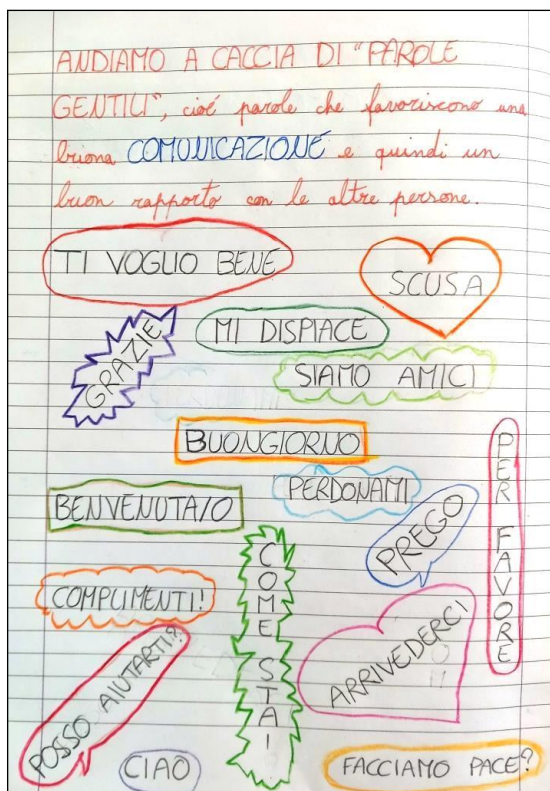 ANDIAMO A CACCIA DI "PAROLE
GENTILI", cioé parole che favoriscono una
buona COMUNICAZIONE e quindi un
buon rapporto con le altre persone.
TI VOGLIO BENE
SCUSA
GRAZIE
MI DISPIACE
SIAMO AMICI
BUONGIORNO
PER FAVORE
BENVENUTA/O
PERDONAMI
PREGO
COME STAI
COMPLIMENTI!
ARRIVEDERCI
POSSO AIUTARTI?
CIAO
FACCIAMO PACE?